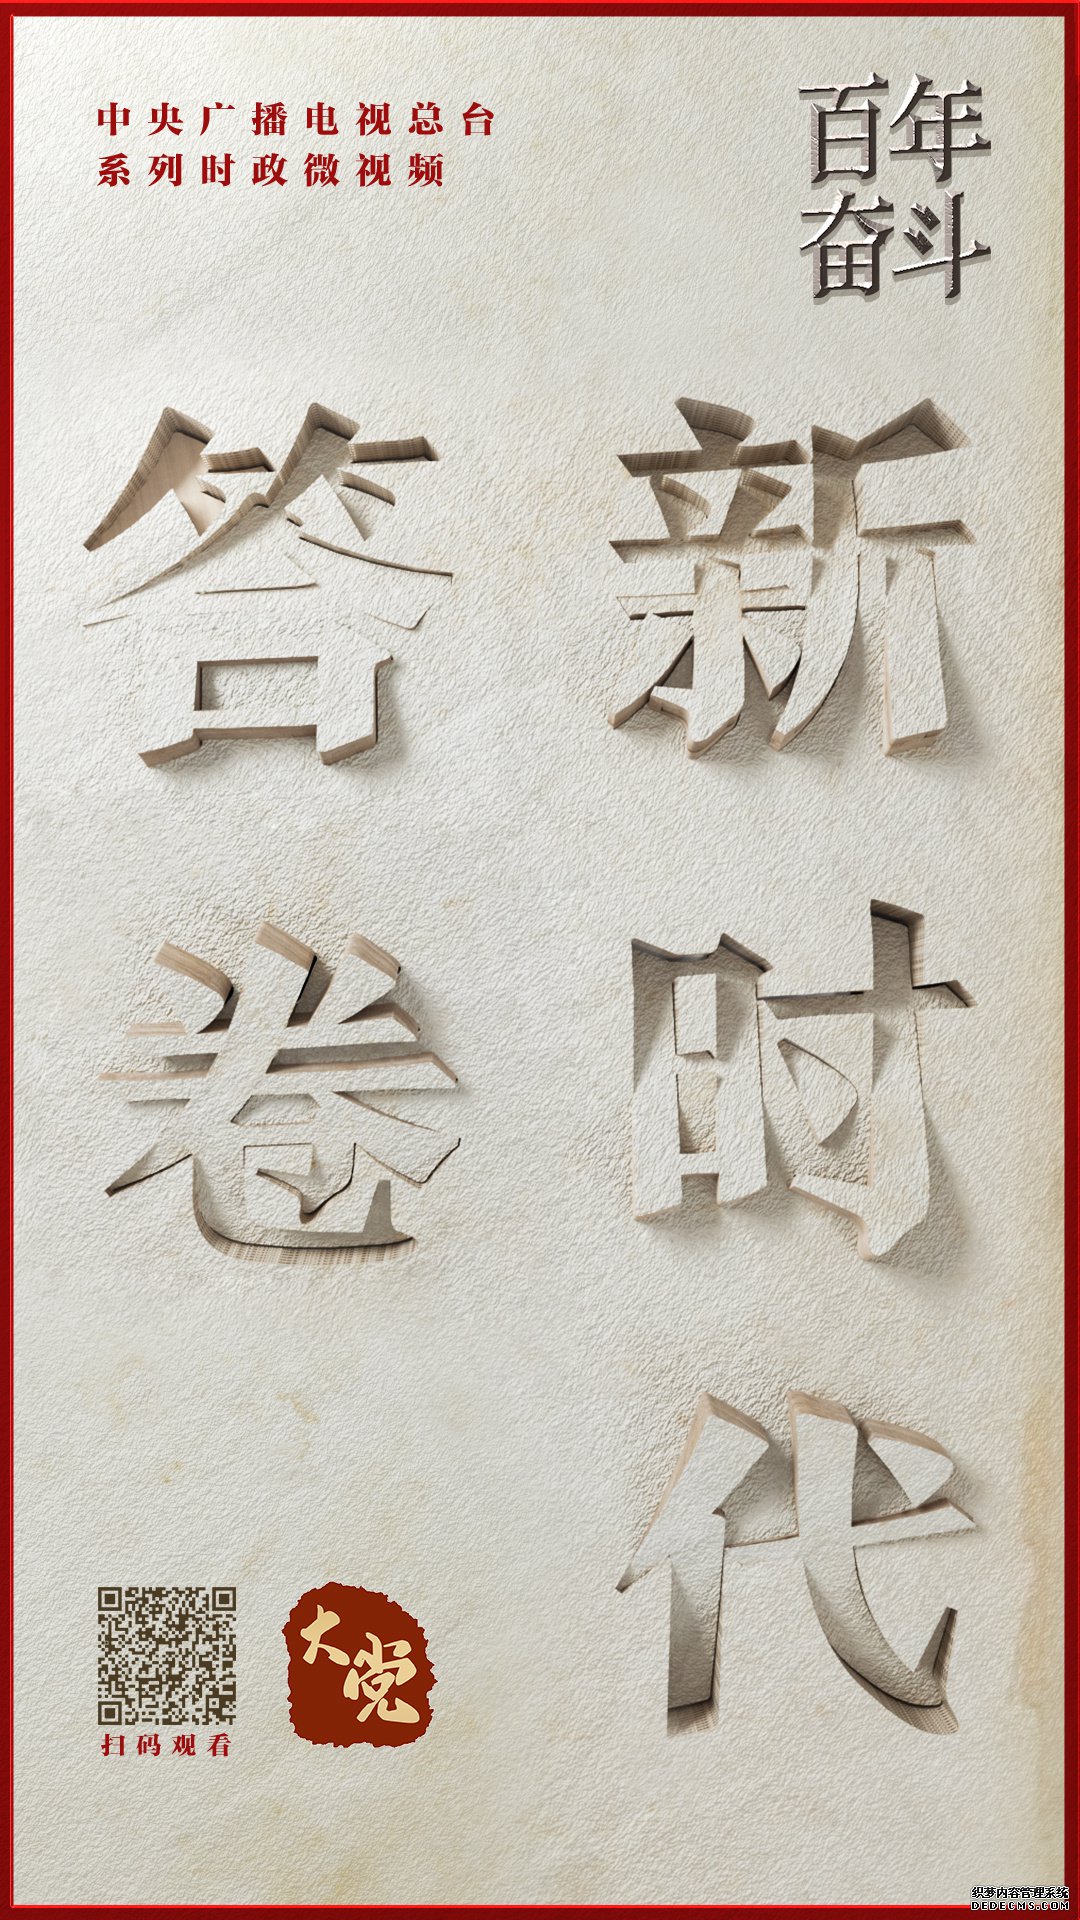 中央广播电视总台
系列时政微视频
百年
奋斗
新时代
答卷
大党
扫码观看
织梦内容管理系统
DEDECMS.COM